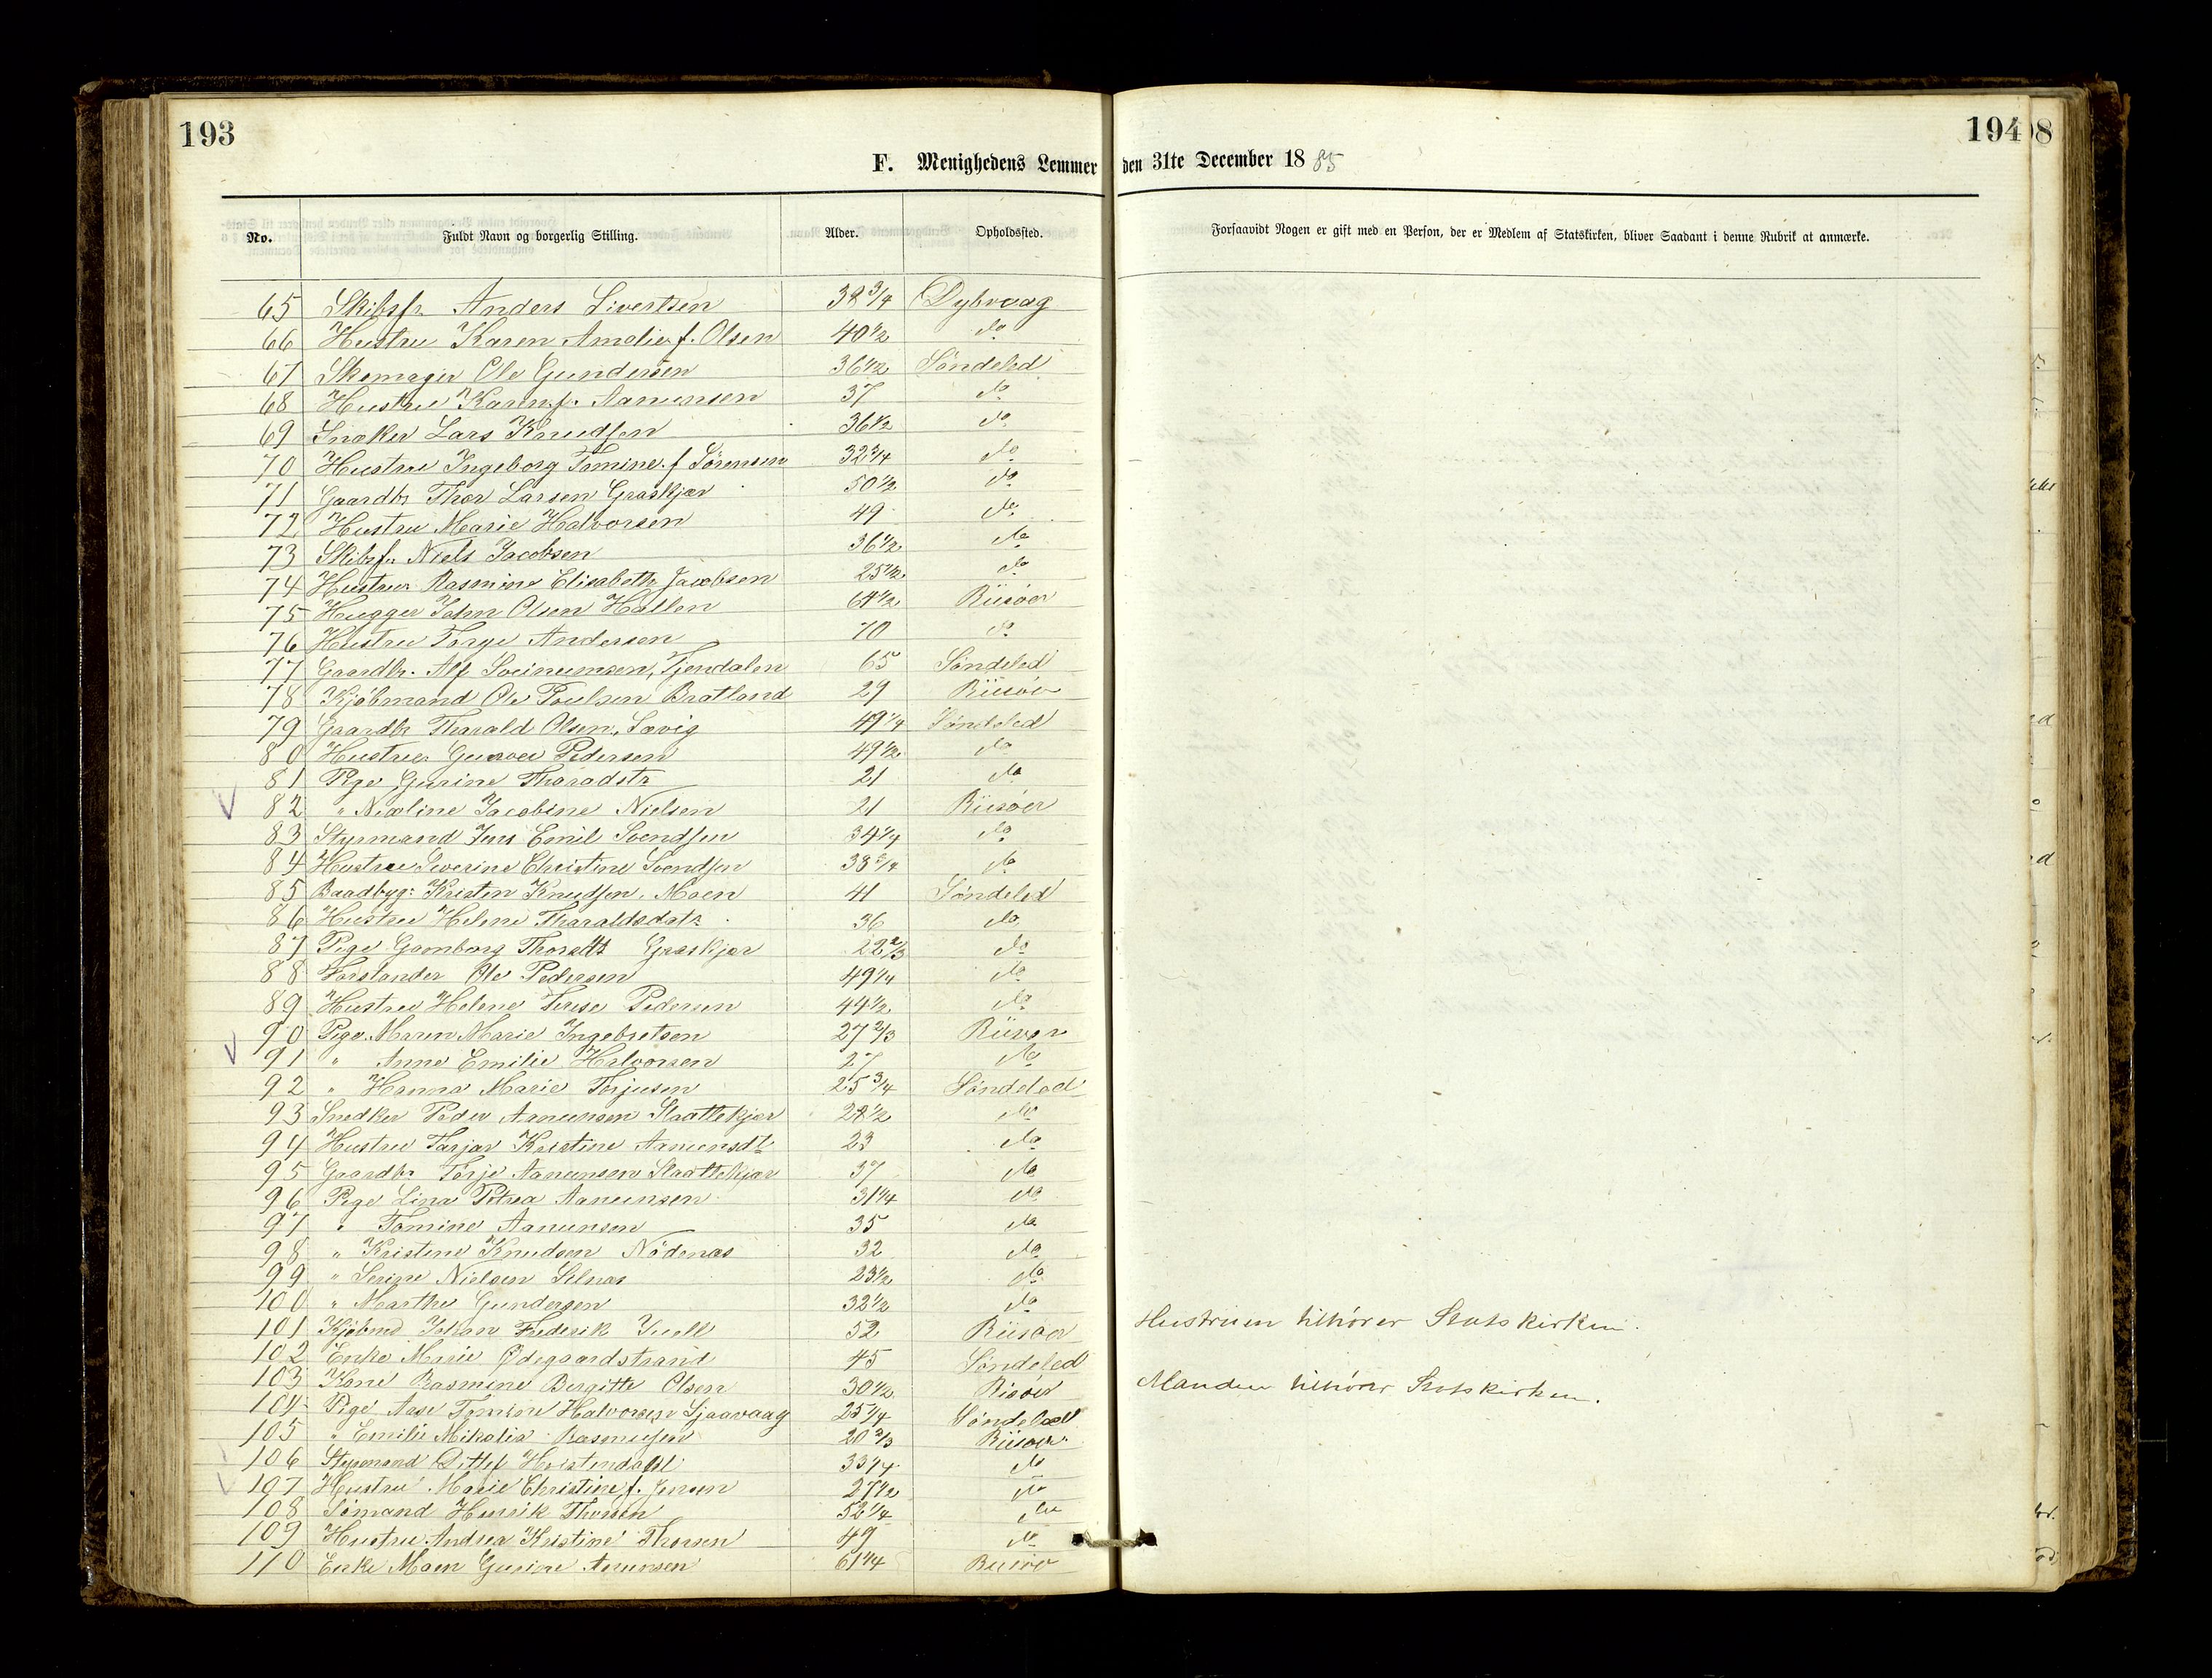 193
194
8
F. Menighedens Lemmer den 31te December 1885
No. Fuldt Navn og borgerlig Stilling. Alder. Opholdssted. Forsaavidt Nogen er gift med en Person, der er Medlem af Statskirken, bliver Saadant i denne Rubrik at anmærke.
65 Skibsfr. Anders Sivertsen 38 3/4 Dybvaag
66 Hustru Karen Amalie f. Olsen 40 1/2 do
67 Skomager Ole Gundersen 36 1/2 Söndeled
68 Hustru Karen f. Aanunsen 37 do
69 Sneker Lars Knudsen 36 1/2 do
70 Hustru Ingeborg Tomine f Sörensen 32 3/4 do
71 Gaardbr Thor Larsen Graskjær 50 1/2 do
72 Hustru Marie Halvorsen 49 do
73 Skibsf. Niels Jacobsen 36 1/2 do
74 Hustru Rasmine Elisabeth Jacobsen 25 1/2 do
75 Hugger John Olsen Hallen 64 1/2 Riisöer
76 Hustru Torge Andersen 70 do
77 Gaardbr. Alf Sveinumsen, Tjendalen 65 Söndeled
78 Kjöbmand Ole Poulsen Bratland 29 Riisöer
79 Gaardbr Tharald Olsen, Sævig 49 1/4 Söndeled
80 Hustru Gunvor Pedersen 49 1/2 do
81 Pige Gurine Tharadstr 21 do
82 " Nicoline Jacobine Nielsen 21 Riisöer
83 Styrmand Jens Emil Svendsen 34 1/4 do
84 Hustru Severine Christine Svendsen 38 3/4 do
85 Baadbyg: Kristen Knudsen, Moen 41 Söndeled
86 Hustru Helene Tharaldsdatr 36 do
87 Pige Gomborg Thorsdtr Graskjær 22 2/3 do
88 Forstander Ole Pedersen 49 1/4 do
89 Hustru Helene Terese Pedersen 44 1/2 do
90 Pige Maren Marie Ingebretsen 27 2/3 Riisöer
91 " Anne Emilie Halvorsen 27 do
92 " Hanna Marie Terjesen 25 3/4 Söndeled
93 Snedker Peder Aanunsen Slaattekjær 28 1/2 do
94 Hustru Tarjar Kristine Aanunsdt. 23 do
95 Gaardbr Törje Aanunsen Slaattekjær 37 do
96 Pige Lina Petrea Aanunsen 31 1/4 do
97 " Tomine Aanunsen 35 do
98 " Kristine Knudsen Nödenæs 32 do
99 " Serine Nielsen Selnæs 23 1/2 do
100 " Marthe Gundersen 32 1/2 do
101 Kjöbmd Johan Frederik Juell 52 Riisöer Hustruen tilhörer Statskirken.
102 Enke Marie Ødegaardstrand 45 Söndeled
103 Kone Rasmine Bergitte Olsen 30 1/2 Risöer Manden tilhörer Statskirken.
104 Pige Aase Tomine Halvorsen Sjaavaag 25 1/4 Söndeled
105 " Emilie Mikalia Rasmussen 20 2/3 Riisöer
106 Styrmand Ditlef Hvistendahl 33 1/4 do
107 Hustru Marie Christine f. Jensen 27 1/2 do
108 Sömand Henrik Thorsen 52 1/4 do
109 Hustru Andrea Kristine Thorsen 49 do
110 Enke Maren Gurine Anunsen 61 1/4 Riisöer